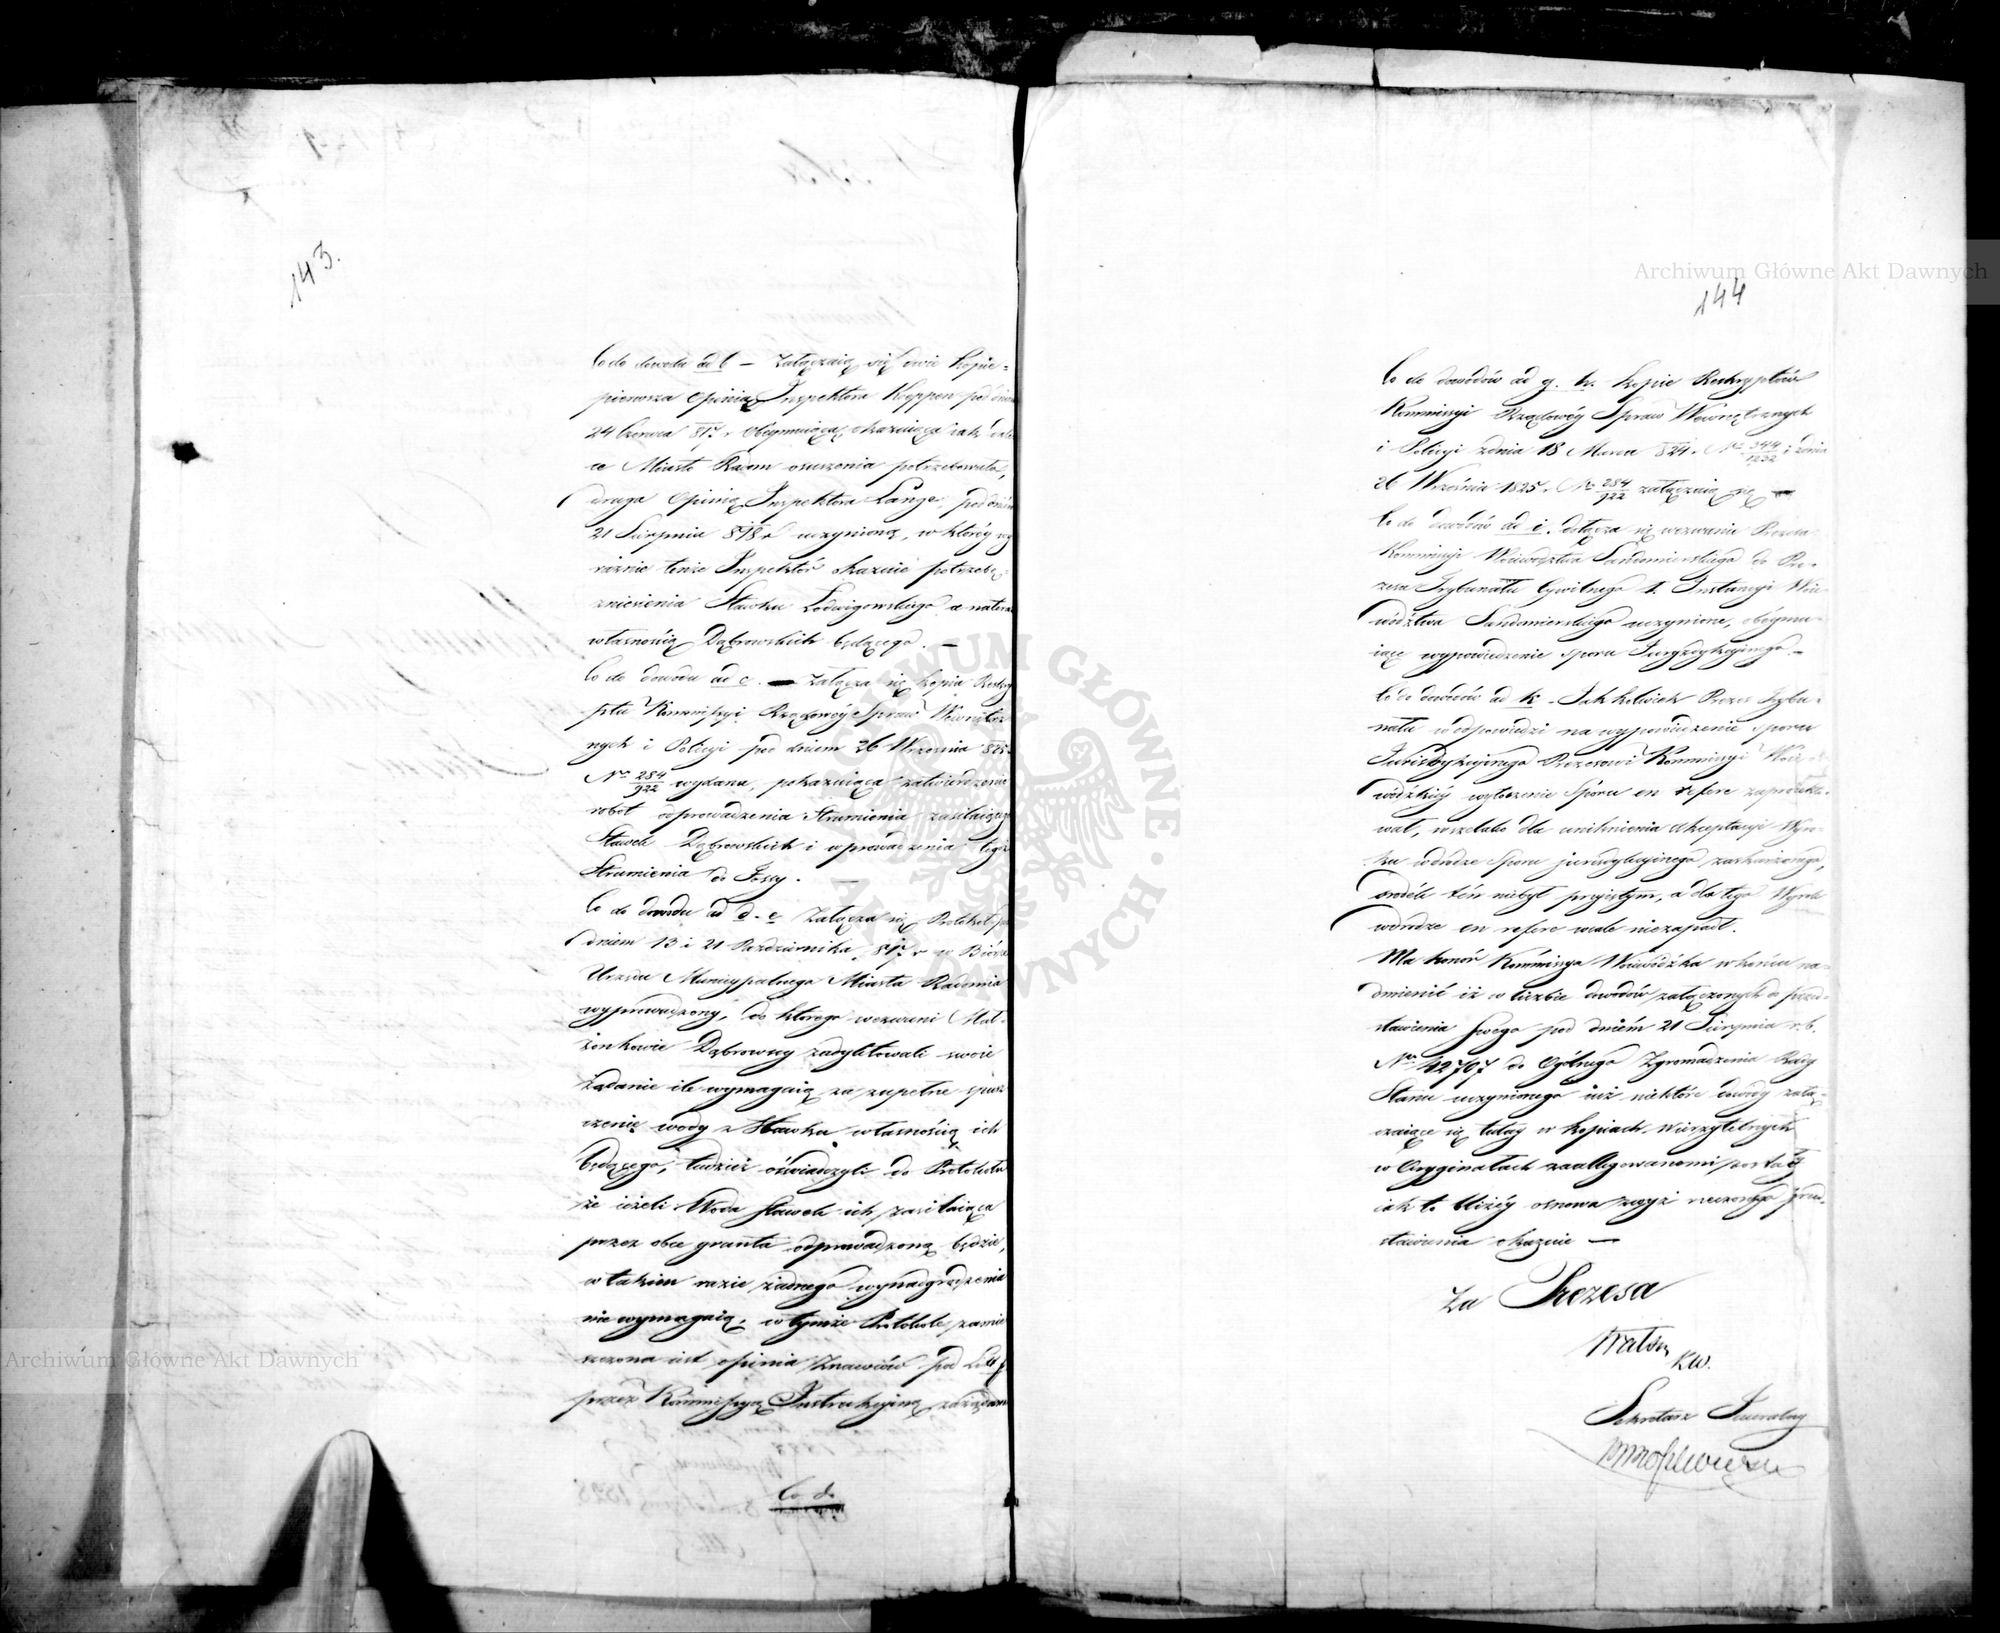 143.
Co do dowodu ad b — załączaią się dwie kopie=
pierwsza Opinią Inspektora Koeppen pod dniem
24 Czerwca 817 r obeymuiąca, okazuiąca iak
ce Miasto Radom osuszenia potrzebowało,
druga Opinią Inspektora Lange, pod dniem
21 Sierpnia 818 r uczynioną, w któréy wy
raźnie tenże Inspektór okazuie potrzebę
zniesienia Stawku Ludwigowskiego a nateraz
własnością Dąbrowskich będącego. —
Co do dowodu ad c. — załącza się kopia Reskry
ptu Kommissyi Rządowéy Spraw Wewnętrz
nych i Policyi pod dniem 26 Września 825
No 284/922 wydana, pokazuiąca zatwierdzenie
robot odprowadzenia Strumienia zasilaiącego
Stawek Dąbrowskich i wprowadzenia tegoż
Strumienia do Fossy. —
Co do dowodu ad d. e załącza się Protokół pod
dniem 13 i 21 Października 817 r w Biórze
Urzędu Municypalnego Miasta Radomia
wyprowadzony, do którego wezwani Mał-
żonkowie Dąbrowscy zadyktowali swoie
żądanie ile wymagaią za zupełne spusz
czenie wody z Stawku własnością ich
będącego, tudzież oświadczyli do Protokułu
że ieżeli Woda Stawek ich zasilaiąca
przez obce grunta odprowadzoną będzie,
w takim razie żadnego wynadgrodzenia
nie wymagaią, w tymże Protokole zamie
szczona iest opinia Znawców pod Lit f
przez Kommissyą Instrukcyiną zażądana
Co do
144
Co do dowodów ad g. h. kopie Reskryptów
Kommissyi Rządowéy Spraw Wewnętrznych
i Policyi z dnia 18 Marca 824. No 344/1232 i z dnia
26 Września 1825 r. No 284/922 załączaią się —
Co do dowodów ad i. dołącza się wezwanie Prezesa
Kommissyi Woiewództwa Sandomierskiego do Pre-
zesa Trybunału Cywilnego 1. Instancyi Woie-
wództwa Sandomierskiego uczynione, obéymu-
iące wypowiedzenie sporu Juryzdykcyinego. —
Co do dowodów ad k. Jakkolwiek Prezes Trybu-
nału w odpowiedzi na wypowiedzenie sporu
Jurizdykcyinego Prezesowi Kommissyi Woie-
wódzkiéy wytoczenie Sporu en refere zaprojekto-
wał, wszelako dla uniknienia akceptacyi Wyro-
ku w drodze Sporu jurizdykcyinego zaskarżonego,
środek ten niebył przyjętym, a dla tego Wyrok
w drodze en refere wcale niezapadł.
Ma honór Kommissya Woiewódzka w końcu na-
dmienić iż w liczbie dowodów załączonych do przed-
stawienia swego pod dniem 21 Sierpnia r. b.
No 42707 do Ogólnego Zgromadzenia Rady
Stanu uczynionego iuż niektóre dowody załą-
czaiące się tutay w kopiach wierzytelnych
w Oryginałach zaallegowanemi zostały
iak to bliżéy osnowa zwyż rzeczonego przed-
stawienia okazuie —
Za Prezesa
KW.
Sekretarz Jeneralny